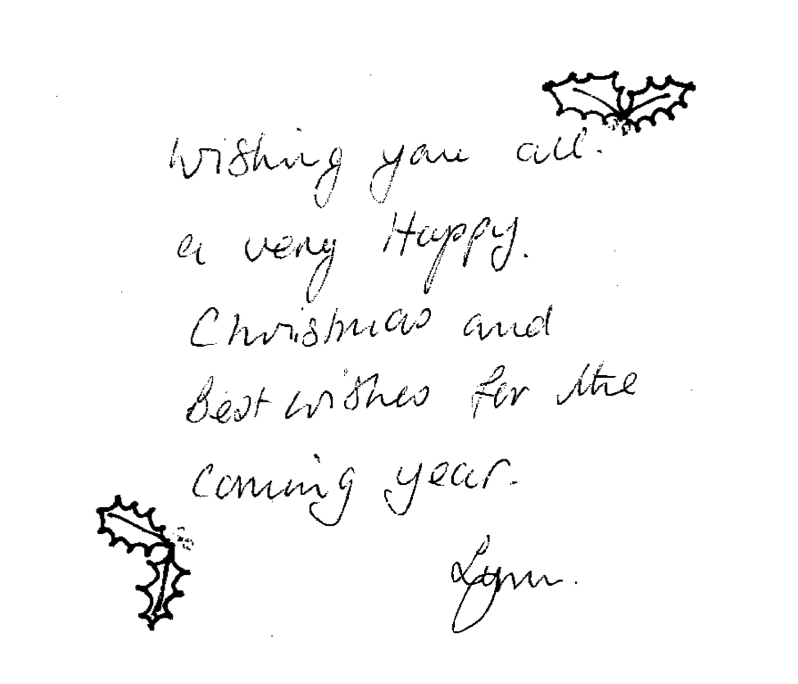 Wishing you all.
a very Happy.
Christmas and
Best wishes for the
coming year.
Lynn.